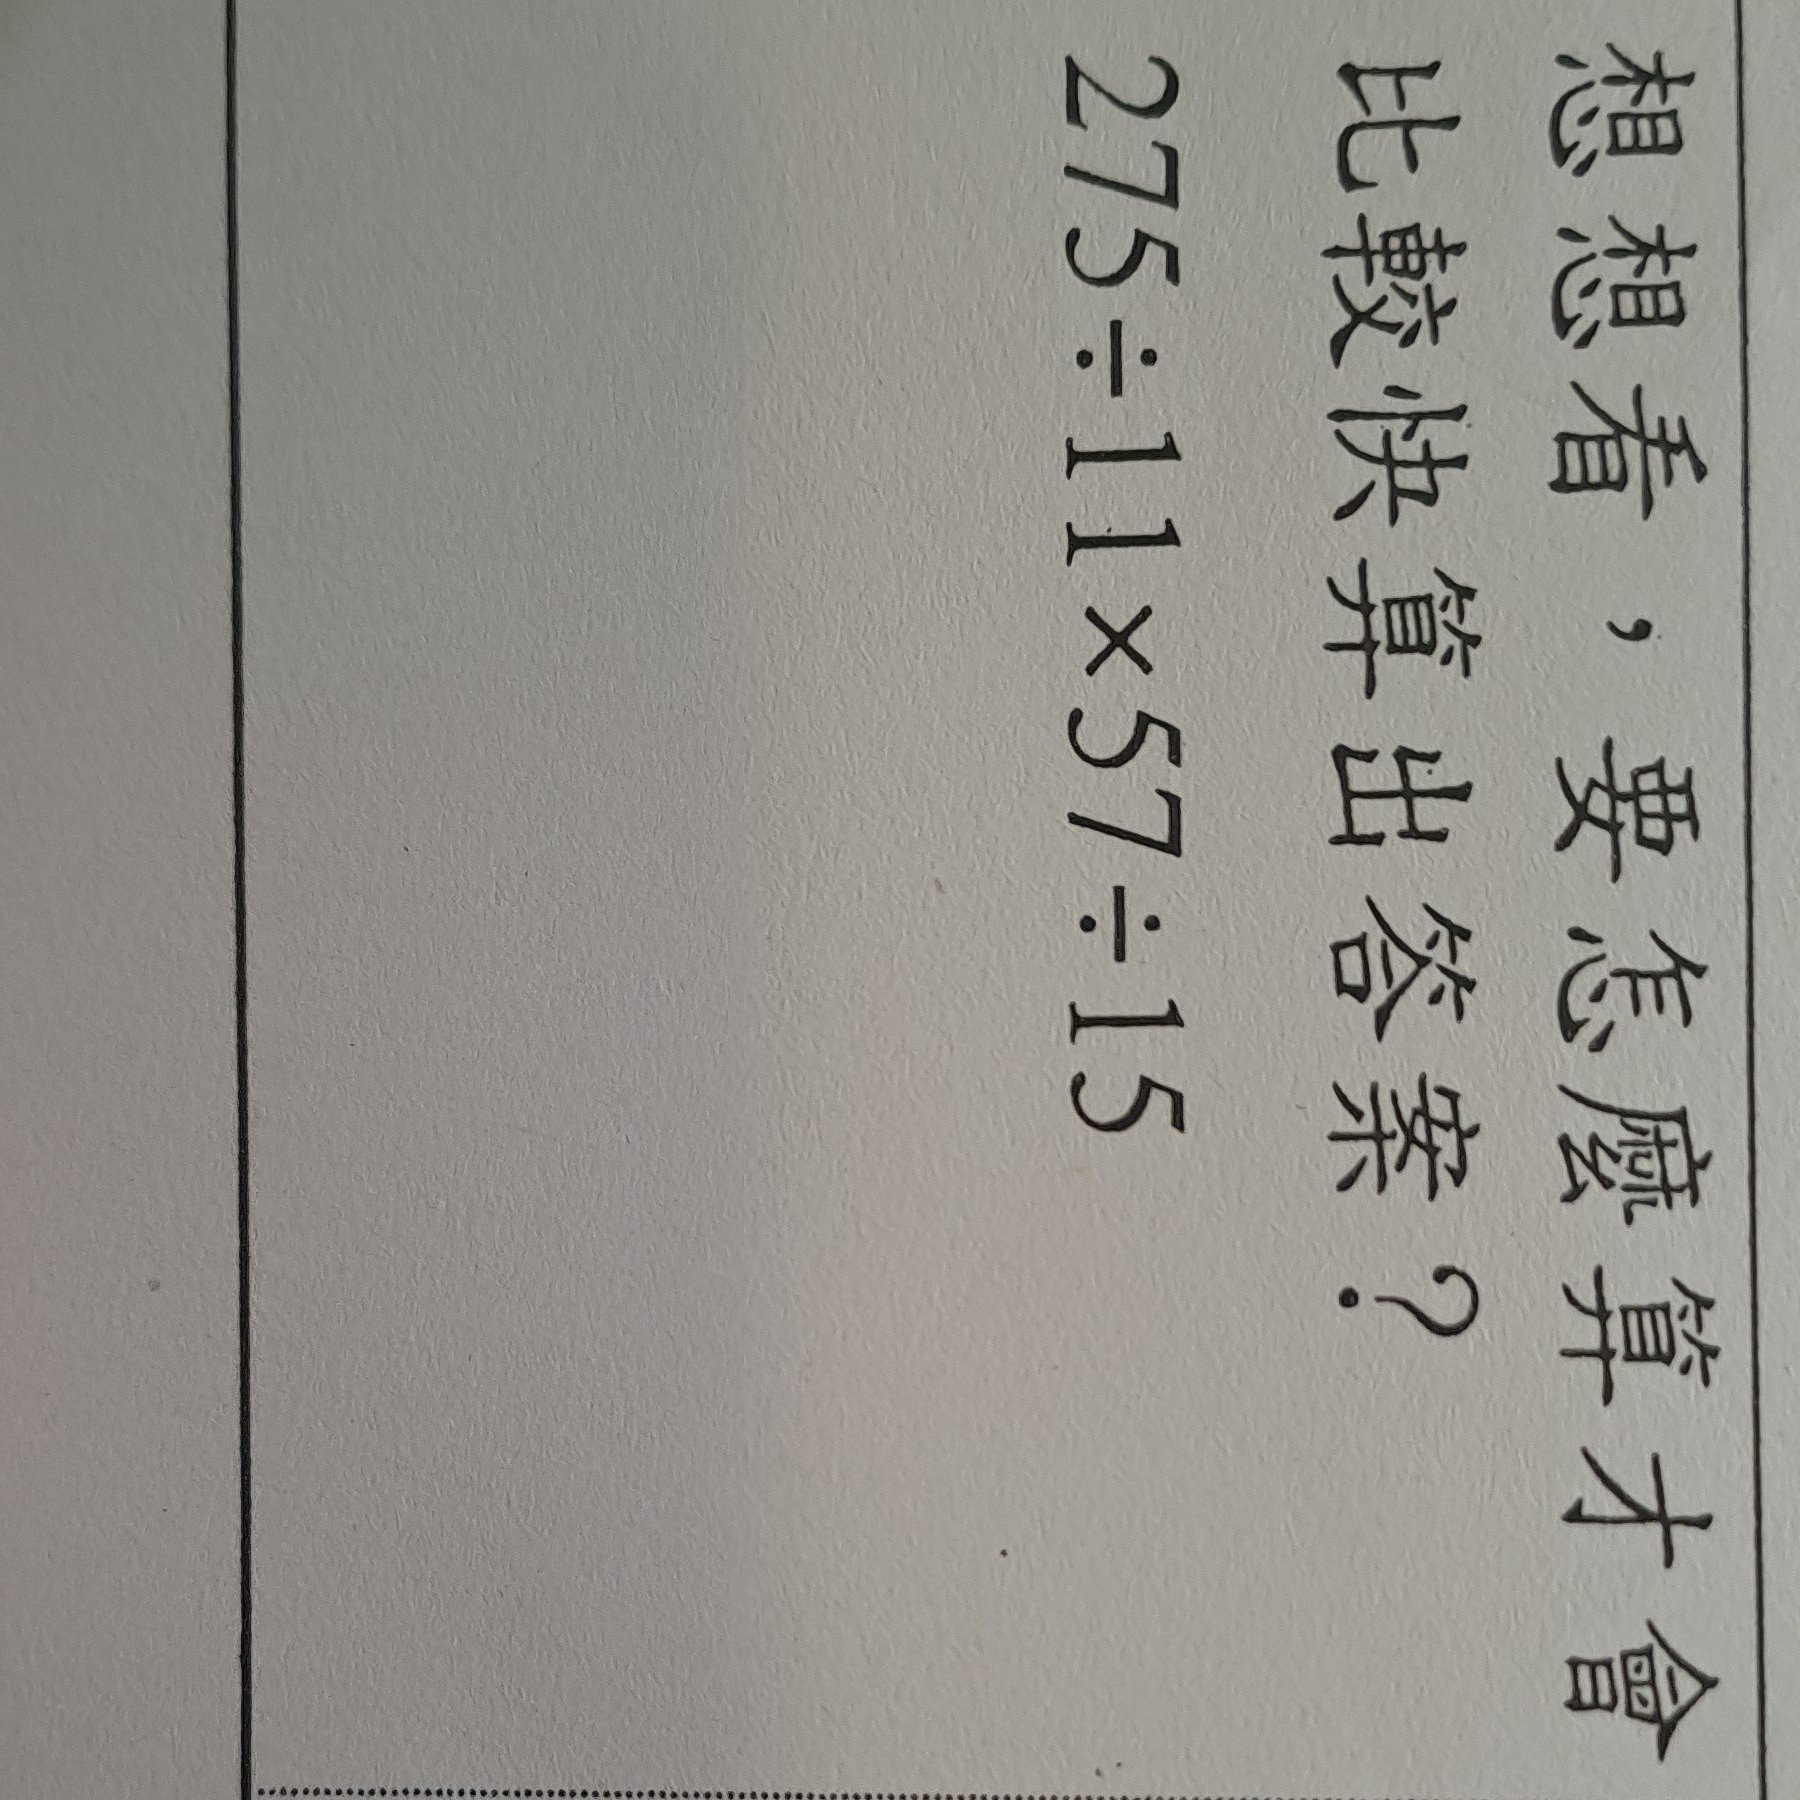 想想看，要怎麼算才會
比較快算出答案？
275÷11×57÷15